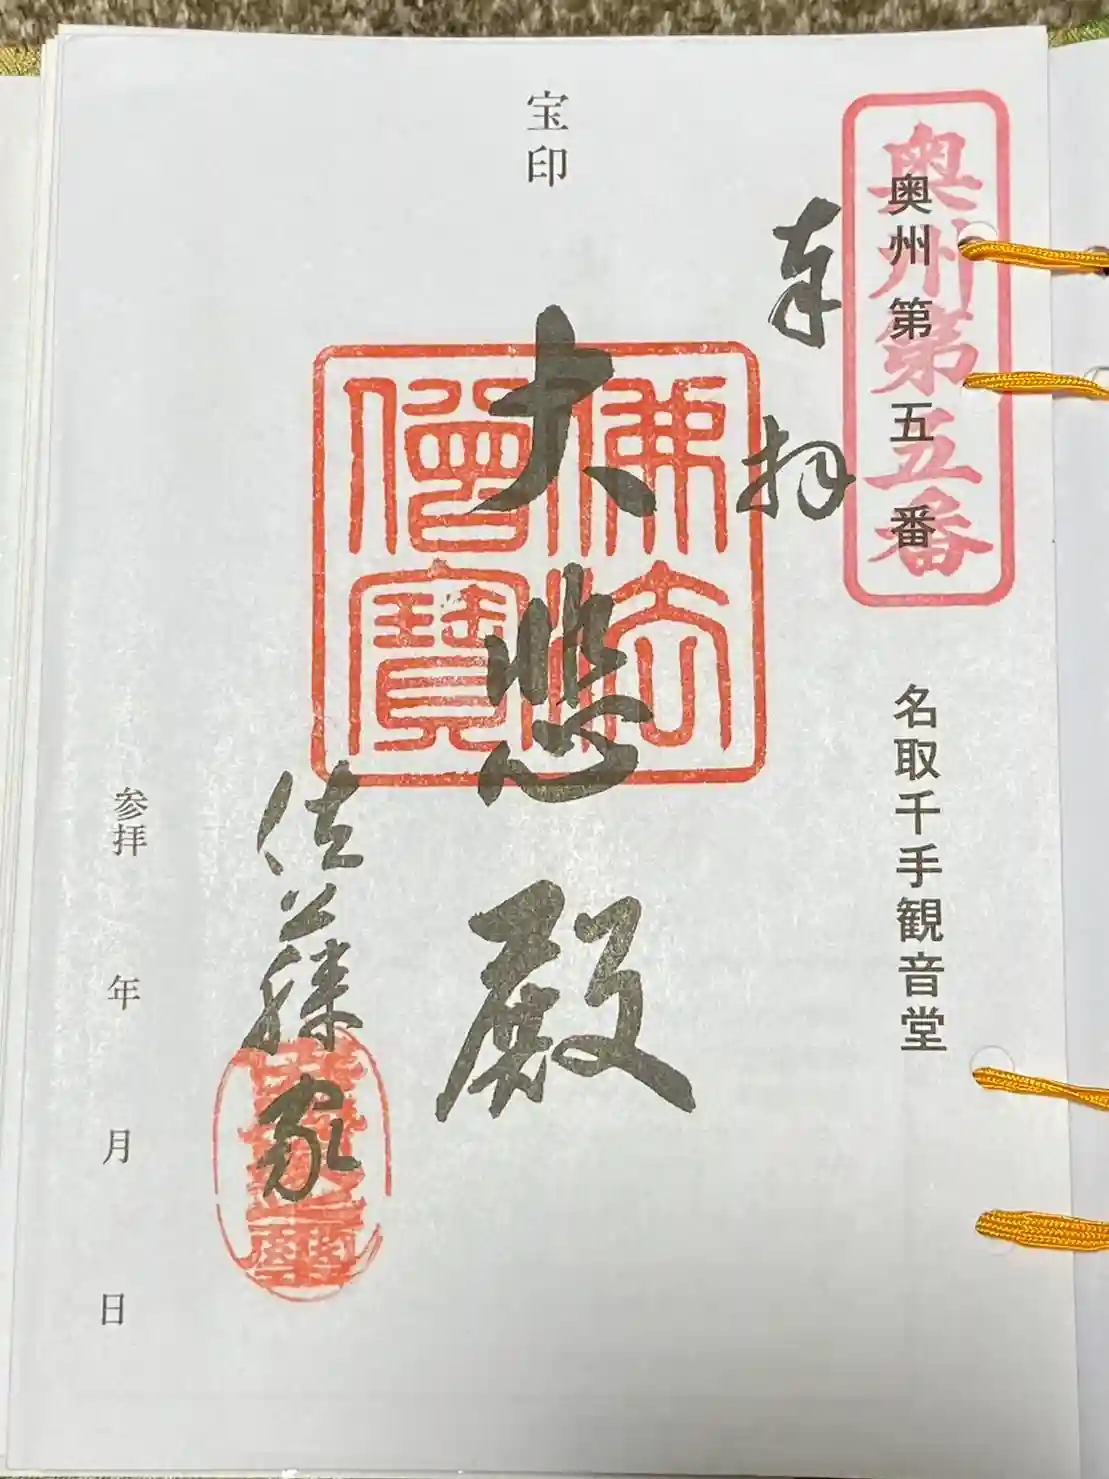 奥州第五番
奥州第五番 名取千手観音堂
奉拝
宝印
大悲殿
佛法僧寳
佐藤家
参拝 年 月 日